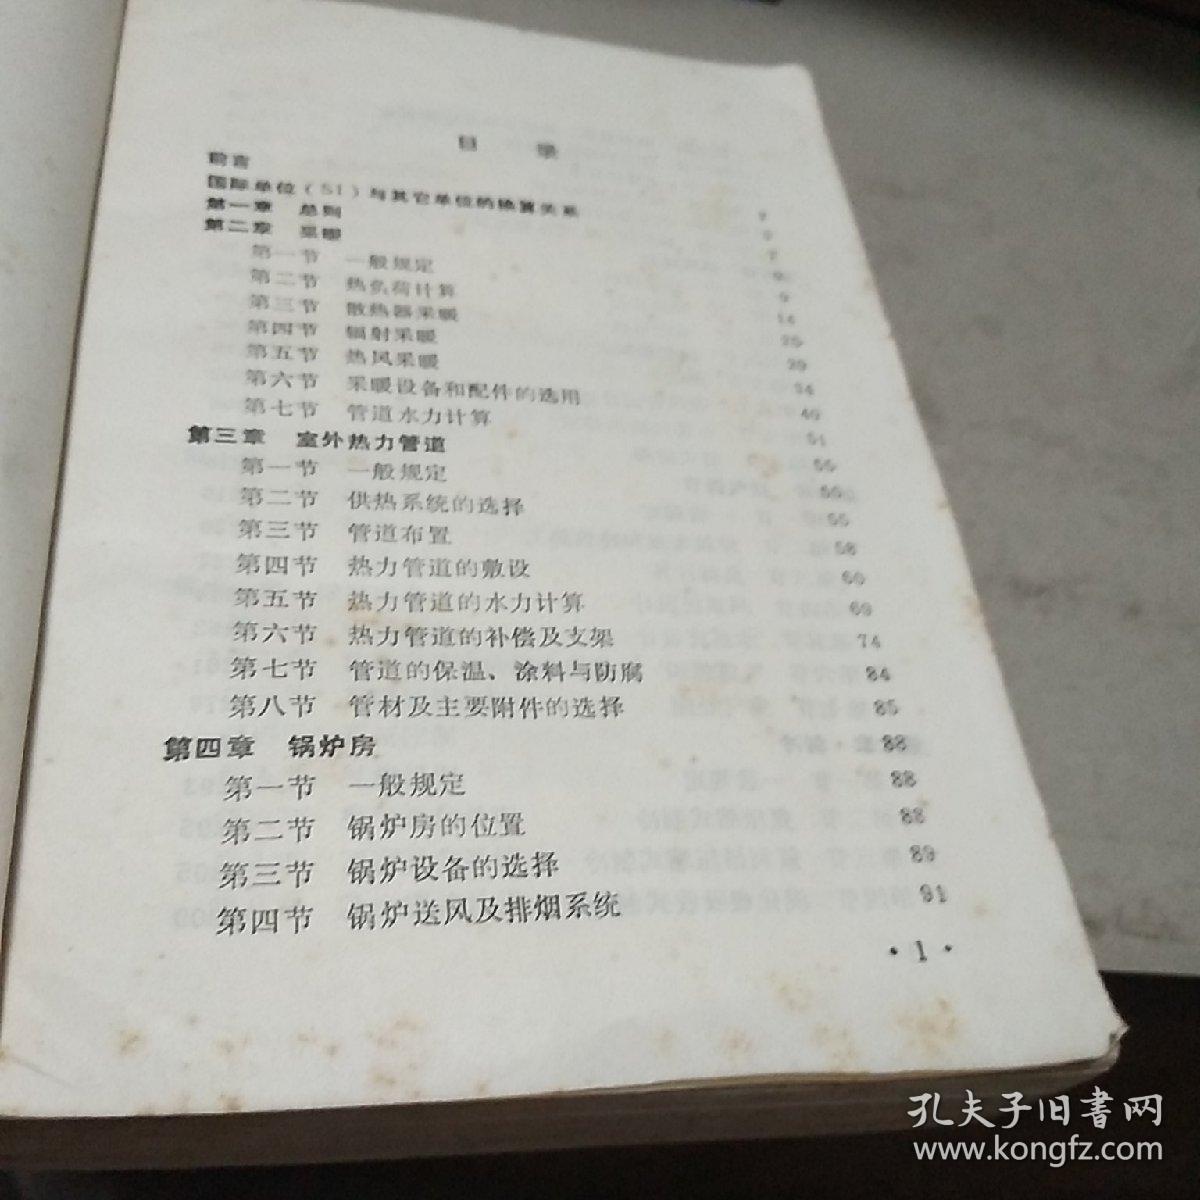 目 录
前言
国际单位（SI）与其它单位的换算关系
第一章 总则 7
第二章 采暖 9
第一节 一般规定 9
第二节 热负荷计算 9
第三节 散热器采暖 14
第四节 辐射采暖 25
第五节 热风采暖 29
第六节 采暖设备和配件的选用 34
第七节 管道水力计算 40
第三章 室外热力管道
第一节 一般规定
第二节 供热系统的选择
第三节 管道布置
第四节 热力管道的敷设
第五节 热力管道的水力计算
第六节 热力管道的补偿及支架 74
第七节 管道的保温、涂料与防腐 84
第八节 管材及主要附件的选择 85
第四章 锅炉房 88
第一节 一般规定 88
第二节 锅炉房的位置 88
第三节 锅炉设备的选择 89
第四节 锅炉送风及排烟系统 91
·1·
孔夫子旧书网
www.kongfz.com